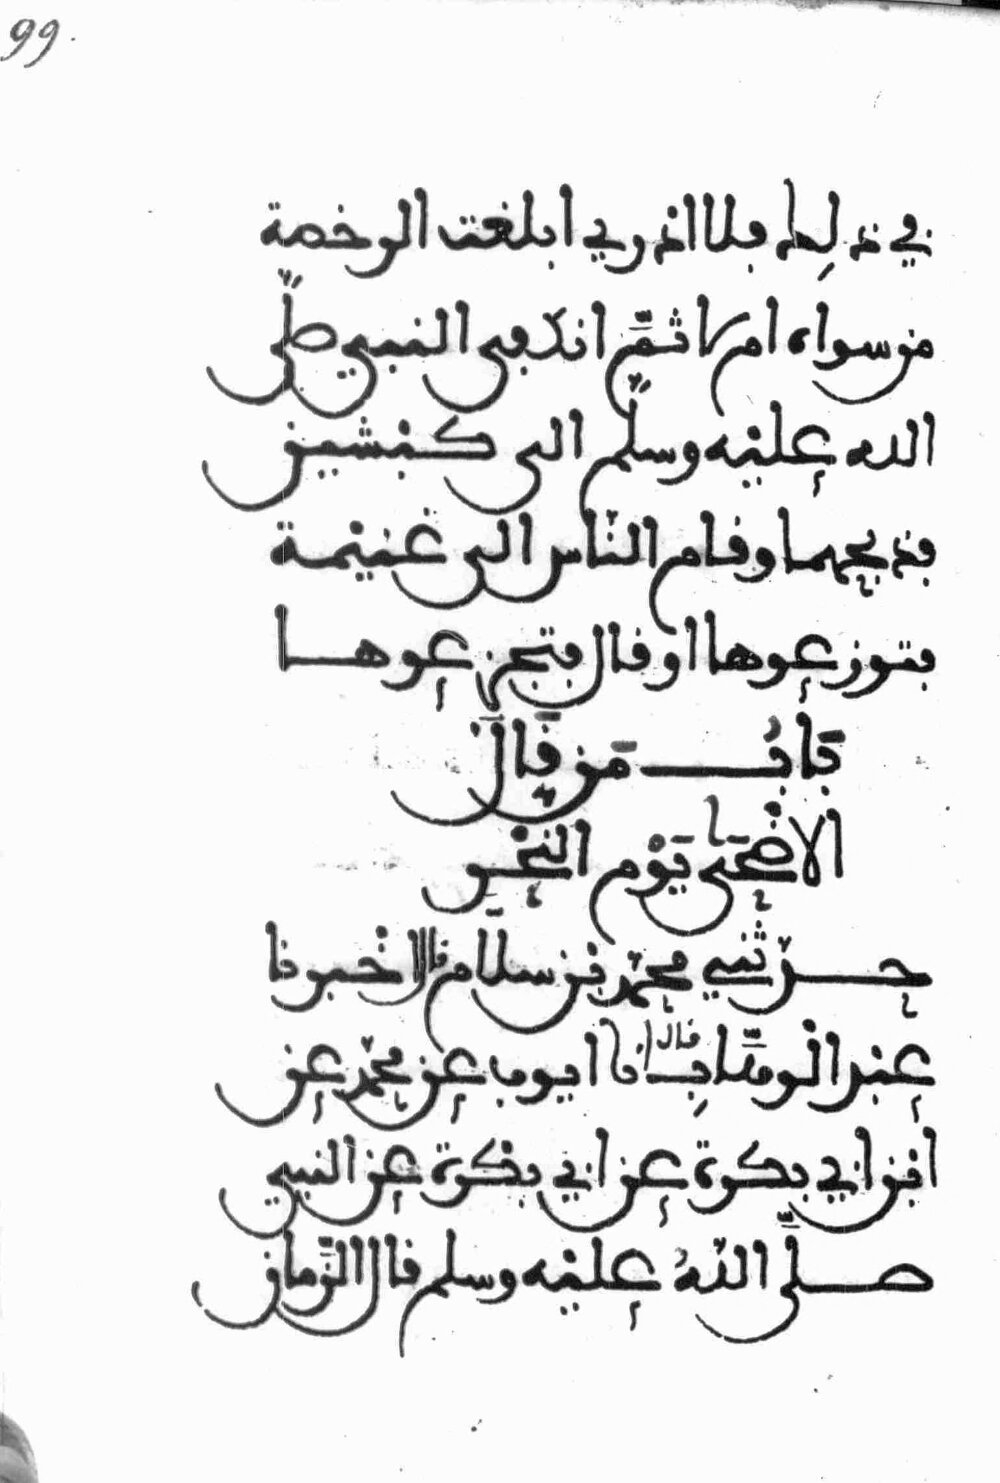 99.
في ذلك فلا ادري ابلغت الرخصة
من سواه ام لا ثمّ انكفى النبي صلّى
الله عليه وسلّم الى كبشين
فذبحهما وقام النّاس الى غنيمة
فتوزعوها او قال فتجزعوها
بَابُ مَن قَالَ
الاضْحَى يَوْم النحْر
حدّثني محمّد بن سلاّم قال اخبرنا
عبد الوهّابِ قال انا ايوب عن محمّد عن
ابن ابي بكرة عن ابي بكرة عن النبي
صلّى اللهُ عليه وسلم قال الزّمان